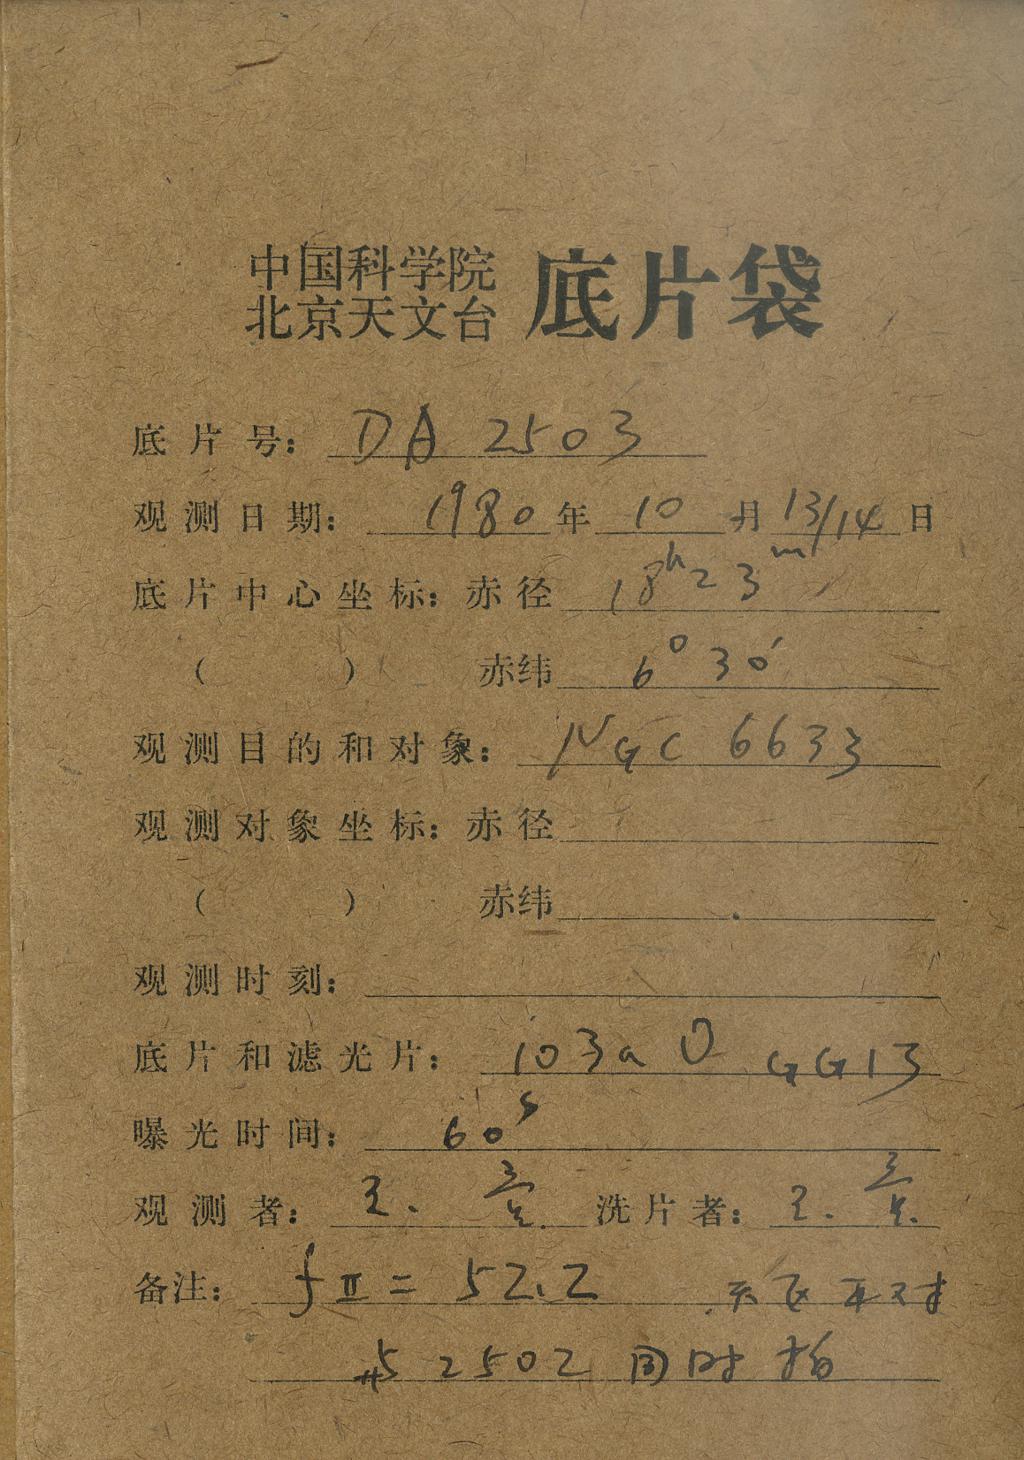 中国科学院
北京天文台 底片袋
底片号： DA 2503
观测日期： 1980 年 10 月 13/14 日
底片中心坐标：赤径 18h23m
（ ） 赤纬 6°30′
观测目的和对象： NGC 6633
观测对象坐标：赤径
（ ） 赤纬
观测时刻：
底片和滤光片： 103aO GG13
曝光时间： 60s
观测者： 王. 洗片者： 王.
备注： fⅡ= 52.2
与 2502 同时拍